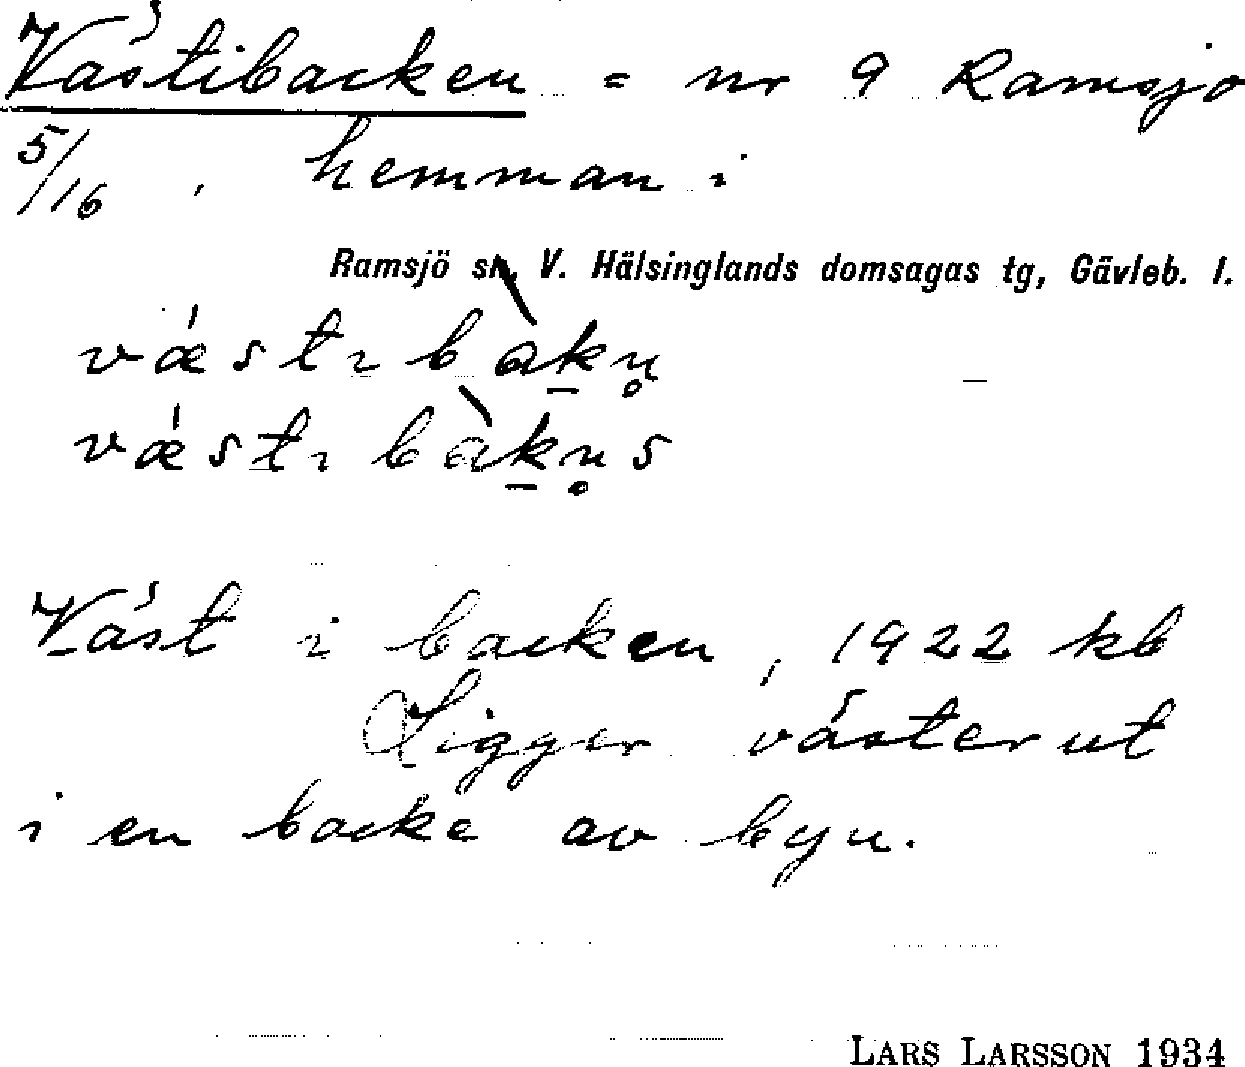 Västibacken = nr 9 Ramsjö
5/16, hemman i
Ramsjö sn, V. Hälsinglands domsagas tg, Gävleb. l.
vǽstıbàkn̥
vǽstıbàkn̥s
Väst i backen, 1922 kb
Ligger västerut
i en backe av byn.
LARS LARSSON 1934